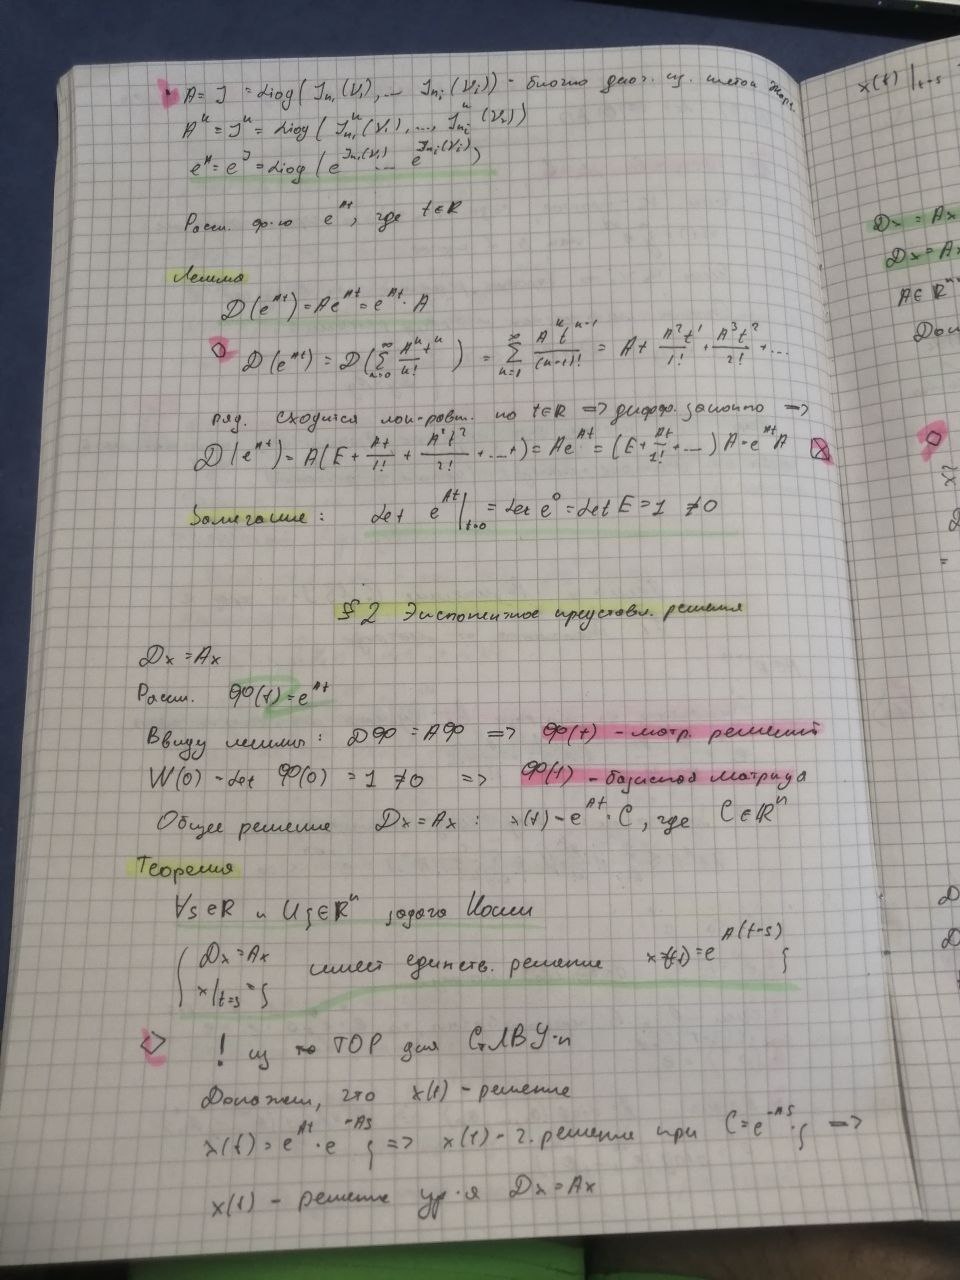 A = J = diag(J_{n_1}(ν_1), ... J_{n_i}(ν_i)) - блочно диаг. из клеток Жорд.
A^k = J^k = diag(J^k_{n_1}(ν_1), ..., J^k_{n_i}(ν_i))
e^A = e^J = diag(e^{J_{n_1}(ν_1)} ... e^{J_{n_i}(ν_i)})
Рассм. ф-ю e^{At}, где t∈R
Лемма
D(e^{At}) = Ae^{At} = e^{At}·A
◇ D(e^{At}) = D(∑_{k=0}^∞ A^k t^k / k!) = ∑_{k=1}^∞ A^k t^{k-1} / (k-1)! = A + A²t¹/1! + A³t²/2! + ...
ряд сходится лок-равн. по t∈R => дифф. законно =>
D(e^{At}) = A(E + At/1! + A²t²/2! + ... +) = Ae^{At} = (E + At/1! + ...) A = e^{At}A ⊠
Замечание: det e^{At}|_{t=0} = det e^0 = det E = 1 ≠ 0
§2 Экспонентное представл. решения
Dx = Ax
Рассм. Ф(t) = e^{At}
Ввиду леммы: DФ = AФ => Ф(t) - матр. решений
W(0) = det Ф(0) = 1 ≠ 0 => Ф(t) - базисная матрица
Общее решение Dx = Ax : x(t) = e^{At}·C, где C∈R^n
Теорема
∀s∈R и ∀ξ∈R^n задача Коши
{ Dx = Ax
x|_{t=s} = ξ имеет единств. решение x(t) = e^{A(t-s)} ξ
◇ ! из ТОР для СтЛВУ-n
Докажем, что x(t) - решение
x(t) = e^{At}·e^{-As} ξ => x(t) - ч. решение при C = e^{-As}·ξ =>
x(t) - решение ур-я Dx = Ax
x(t)|_{t=s}
Dx = Ax
Dx = Ax